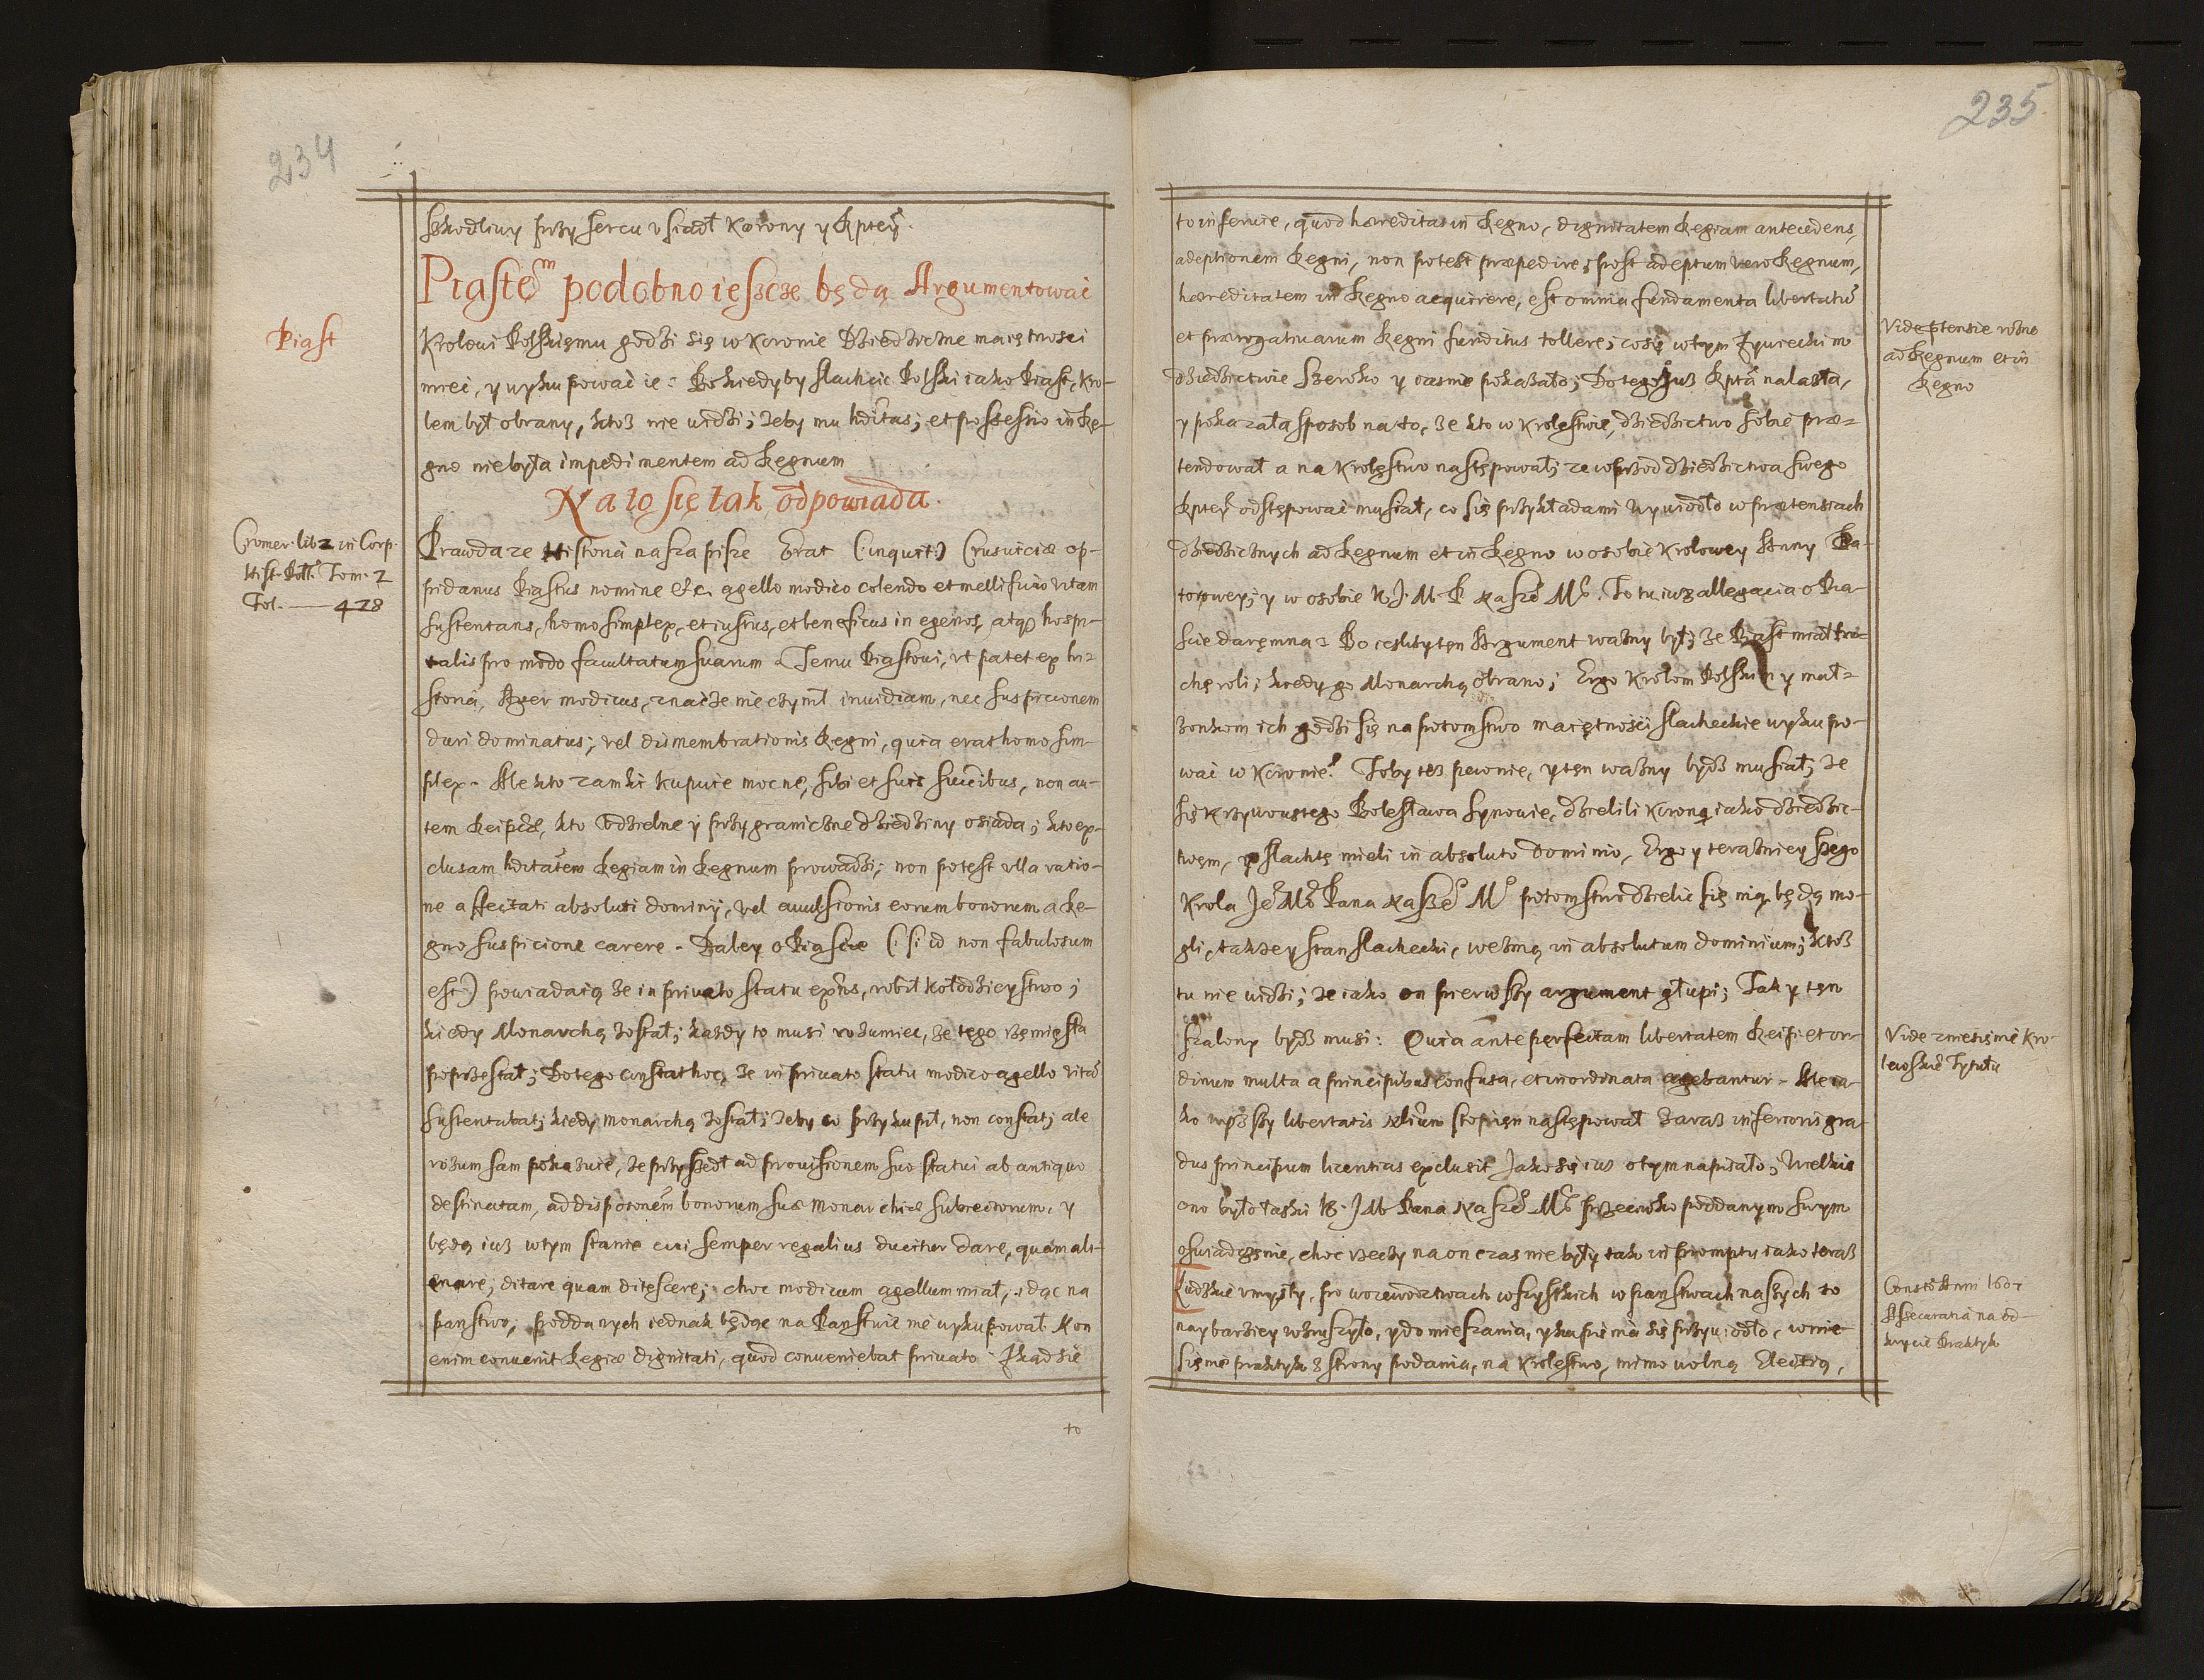 234
szkodliwy przy sercu usiadł Korony y Rptey.
Piastem podobno ieszcze będą Argumentować
Piast
Krolowi Polskiemu godzi się w Koronie Dziedziczne maiętnosci
mieć, y wykupować ie: Bo kiedyby slachcic Polski iako Piast, Kro-
lem był obrany, ktoż nie widzi; żeby mu hditas; et possessio in Re-
gno niebyła impedimentem ad Regnum
Na to się tak odpowiada.
Cromer. lib 2 in Corp.
Hist. Poll. Tom. 2
Fol. — 428
Prawda ze Historia nasza pisze Erat (: inquit :) Crusuiciæ op-
pidanus Piastus nomine &c. agello modico colendo et mellificio vitam
sustentans, homo simplex, et iustus, et beneficus in egenos, atq hospi-
talis pro modo facultatum suarum. Temu Piastowi, ut patet ex hi-
storia, Ager modicus, znać że nie czynił inuidiam, nec suspicionem
duri dominatus; vel dismembrationis Regni, quia erat homo sim-
plex. Ale kto zamki kupuie mocne, sibi et suis succribus, non au-
tem Reipcæ, kto Udzielne y przygraniczne dziedziny osiada; kto ex-
clusam hditatem Regiam in Regnum prowadzi; non potest ulla ratio-
ne affectati absoluti dominij, vel auulsionis eorum bonorum a Re-
gno suspicione carere. Daley o Piascie (: si id non fabulosum
est :) powiadaią że in priuato statu exñs, robił kołodzieystwo;
kiedy Monarchą został; każdy to musi rozumiec, że tego rzemięsła
poprzestał; Do tego constat hoc, że in priuato statu modico agello vitã
sustentabat; kiedy monarchą został; żeby co przykupił, non constat; ale
rozum sam pokazuie, że przyszedł ad prouisionem suo statui ab antiquo
destinatam, ad dispotionem bonorum suæ monarchiæ subiectorum, y
będąc iuż w tym stanie cui semper regalius ducitur dare, quam ali-
enare; ditare quam ditescere; choc modicum agellum miał, idąc na
panstwo; poddanych iednak będąc na Panstwie nie wykupował. Non
enim conuenit Regiæ dignitati, quod conueniebat priuato. Zkąd sie
to
235
to inferuie, quod hæreditas in Regno, dignitatem Regiam antecedens,
adeptionem Regni, non potest præpedire; post adeptum vero Regnum,
hæreditatem in Regno acquirere, est omnia fundamenta libertatũ
et prærogatiuarum Regni funditus tollere; co się w tym Zywieckim
Vide ptensie rożne
ad Regnum et in
Regno
dziedzictwie Szeroko y iasnie pokazało; Do tego iuż Rpta nalazła,
y pokazała sposob na to, że kto w Krolestwie, dziedzictwo sobie præ-
tendował a na Krolęstwo następował; ze wprzod dziedzictwa swego
Rptey odstępować musiał, co się przykładami wywiodło w prætensiach
dziedzicznych ad Regnum et in Regno w osobie Krolowey Anny Ba-
torowey; y w osobie K. J. M. P. naszeº Mº. To tu iuz allegacia o Pia-
scie daręmna: Bo iesliby tęn Argument ważny był; że Piast miał tro-
chę roli; kiedy go Monarchą obrano; Ergo Krolom Polskim y mał-
żonkom ich godzi się na potomstwo maiętności slacheckie wykupo-
wac w Koronie? Toby też pewnie, y tęn ważny bydż musiał; że
się Krzywoustego Bolesława Synowie, dzielili Koroną iako dziedzic-
twem, y slachtę mieli in absoluto dominio, Ergo y teraznieyszego
Krola Jeº Mº Pana naszeº Mº potomstwo dzielic się nią będą mo-
gli, takze y stan slachecki, wezmą in absolutum dominium; ktoż
tu nie widzi; że iako on pierwszy argument głupi; Tak y tęn
szalony bydż musi: Quia ante perfectam libertatem Reip. et or-
Vide zniesięnie Kro-
lewskie Tytułu
dinum multa a principibus confusa, et inordinata agebantur. Ale ia-
ko wyższy libertatis stopięn następował zaraz inferioris gra-
dus principum licentias exclusit. Jako się iuż o tym napisało; Wielkie
ono było łaski K. J. M. Pana naszeº Mº przeciwko poddanym swym
oswiadczęnie, choc rzeczy na on czas nie były tak in promptu iako teraz
Ludzkie umysły, po woiewodztwach wszystkich w panstwach naszych to
Consto Anni 160
Assecuratia na od-
krycie Praktyk
naybarziey wzruszyło, y do mieszania, y kupienia się przywiodło, wnie-
sięnie praktyk z strony podania, na Krolestwo, mimo wolną Electią,